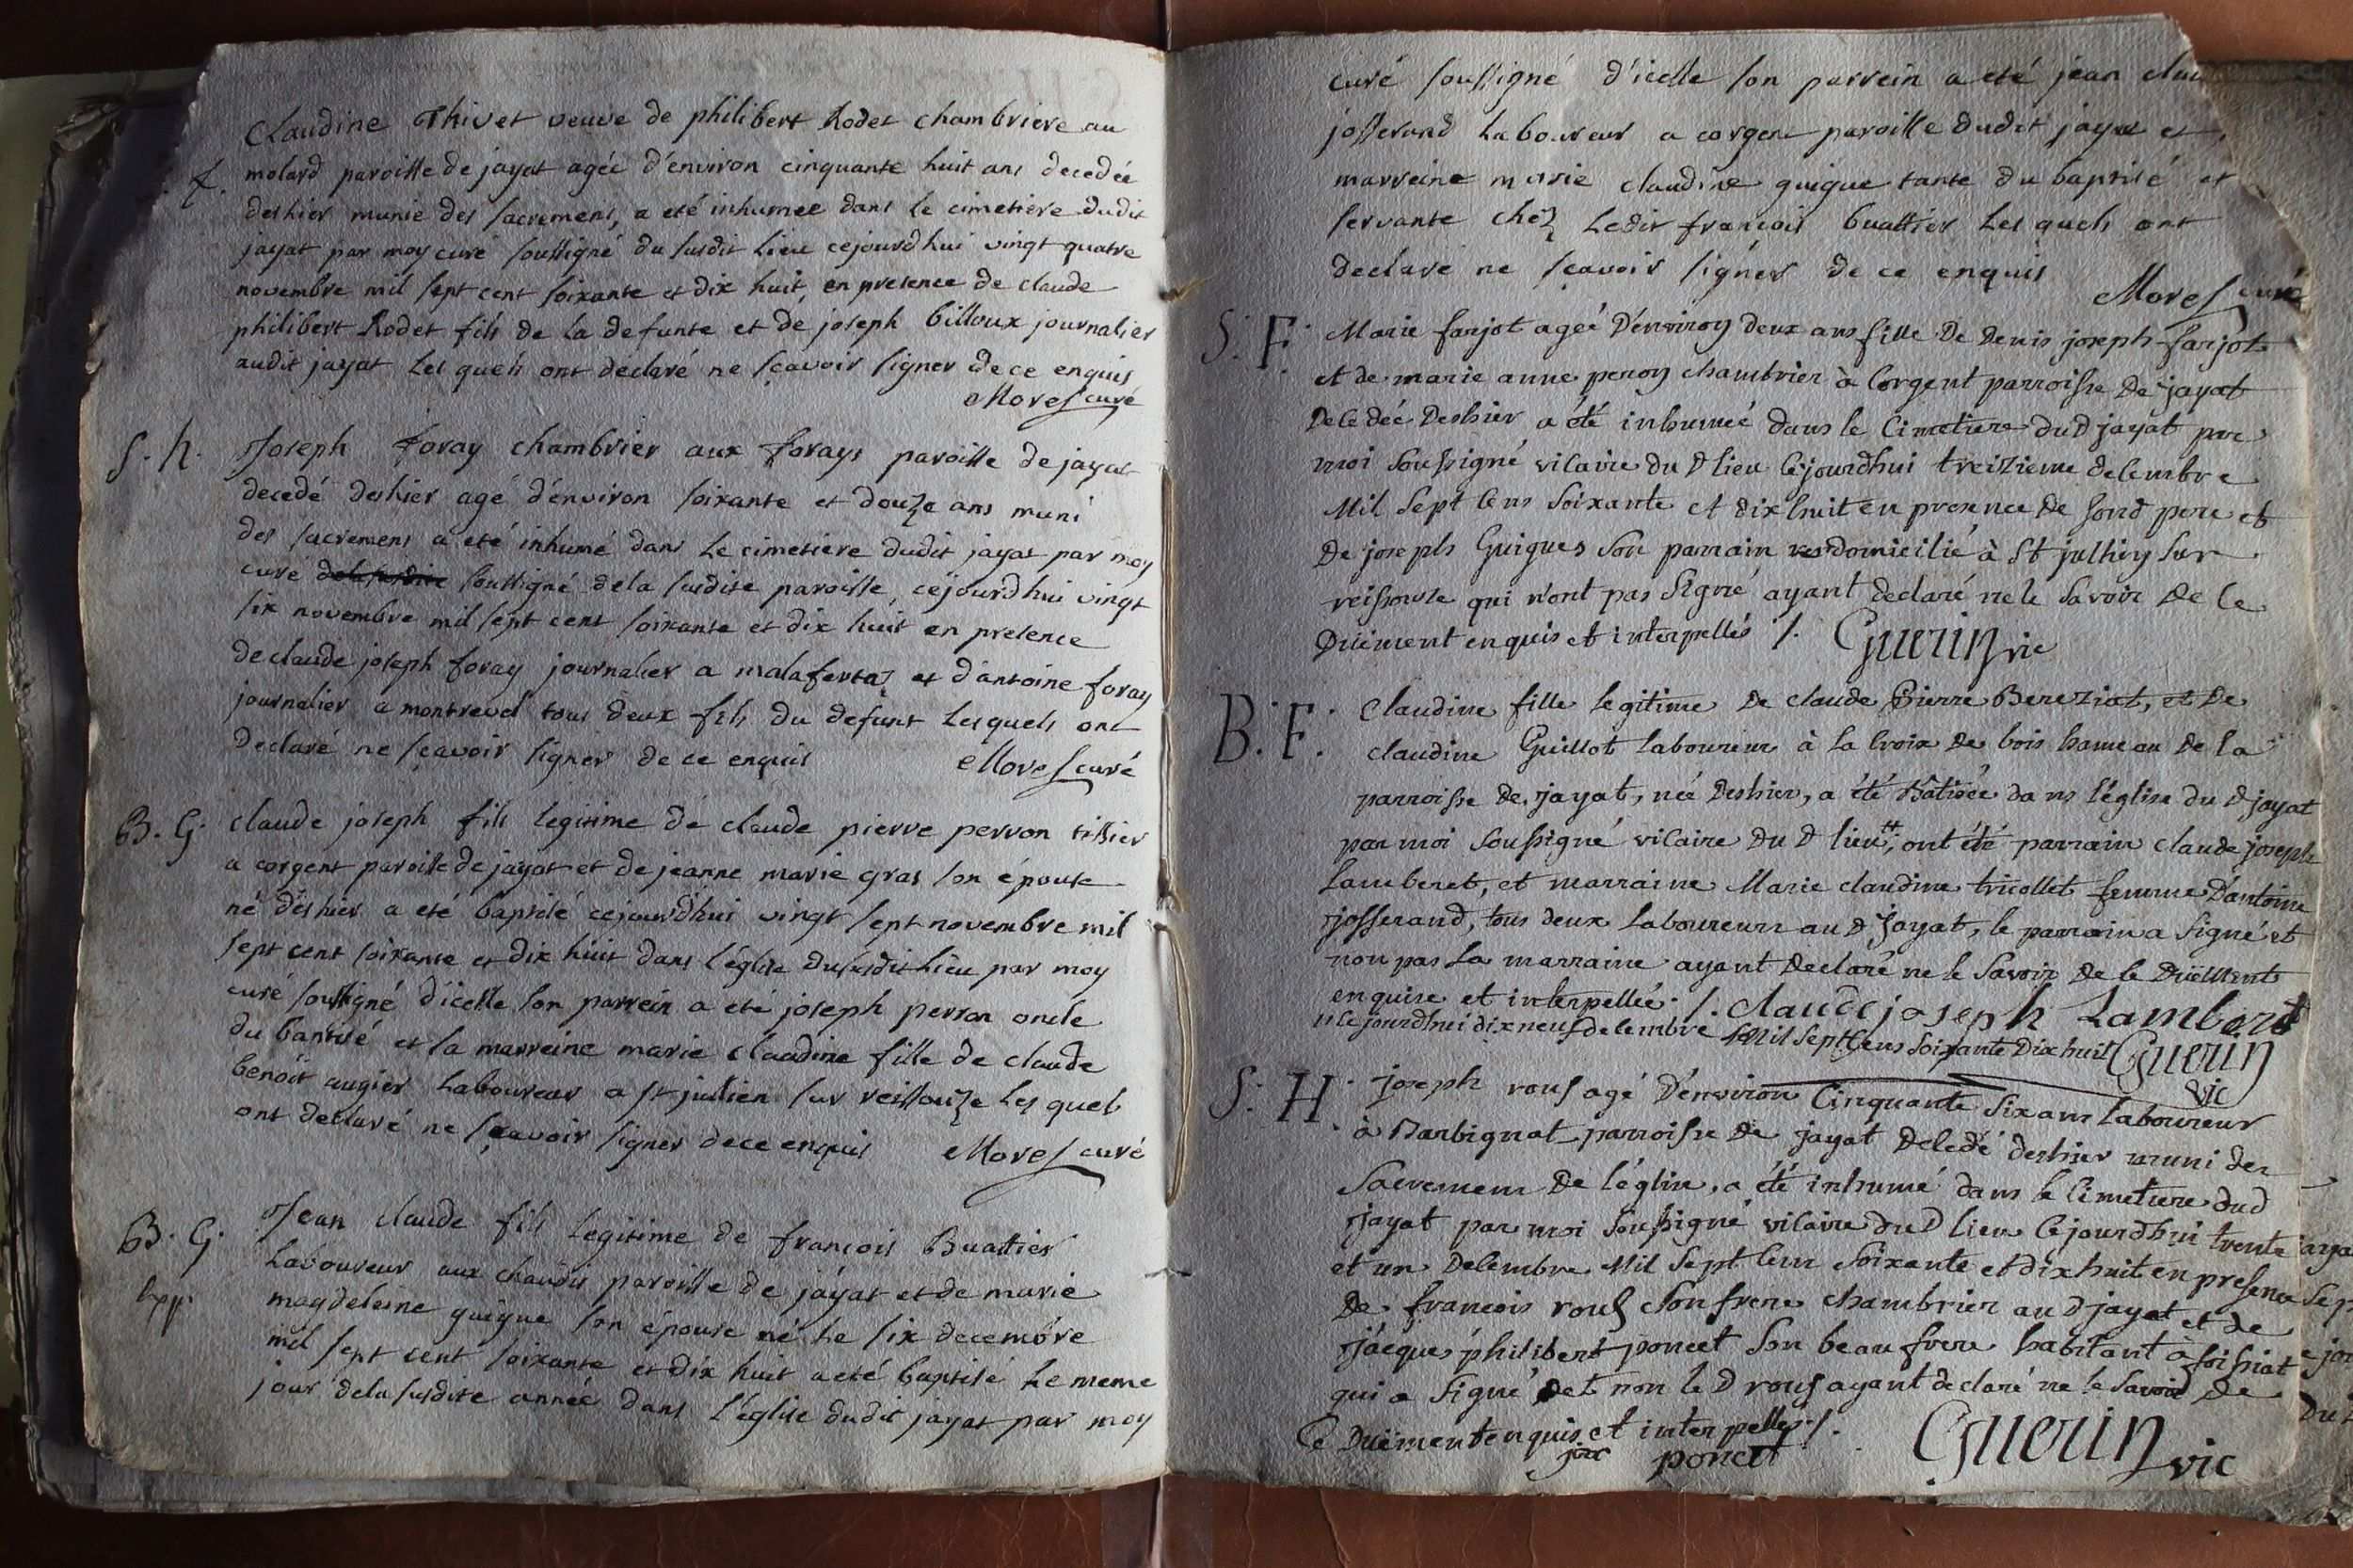 Claudine Thivet veuve de philibert Rodet chambriere au
f. molard paroisse de jayat agée d'environ cinquante huit ans decedée
deshier munie des sacremens, a eté inhumee dans le cimetiere dudit
jayat par moy curé soussigné du susdit lieu cejourd'hui vingt quatre
novembre mil sept cent soixante et dix huit, en presence de claude
philibert Rodet fils de la defunte et de joseph billoux journalier
audit jayat les quels ont declaré ne sçavoir signer de ce enquis
Morel curé
S. h. Joseph foray chambrier aux forays paroisse de jayat
decedé deshier agé d'environ soixante et douze ans muni
des sacremens a eté inhumé dans le cimetiere dudit jayat par moy
curé soussigné de la susdite paroisse, cejourd'hui vingt
six novembre mil sept cent soixante et dix huit en presence
de claude joseph foray journalier a malafertaz et d'antoine foray
journalier a montrevel tous deux fils du defunt lesquels ont
declaré ne sçavoir signer de ce enquis Morel curé
B. G. claude joseph fils legitime de claude pierre perron tissier
a corgent paroisse de jayat et de jeanne marie gras son épouse
né deshier a eté baptisé cejourd'hui vingt sept novembre mil
sept cent soixante et dix huit dans l'église du susdit lieu par moy
curé soussigné d'icelle son parrein a eté joseph perron oncle
du baptisé et la marreine marie claudine fille de claude
benoit augier laboureur a st julien sur reissouze les quels
ont declaré ne sçavoir signer de ce enquis Morel curé
B. G. Jean claude fils legitime de francois Buattier
laboureur aux chaudis paroisse de jayat et de marie
magdeleine guigue son épouse né le six decembre
mil sept cent soixante et dix huit a eté baptisé le meme
jour de la susdite année dans l'église dudit jayat par moy
curé soussigné d'icelle son parrein a eté jean
josserand laboureur a corgent paroisse dudit jayat et
marreine marie claudine guigue tante du baptisé et
servante chez ledit francois buattier les quels ont
declaré ne sçavoir signer de ce enquis
Morel curé
S. F. Marie farjot agée d'environ deux ans fille de denis joseph farjot
et de marie anne peron chambrier à Corgent parroisse de jayat
decedée deshier a été inhumée dans le cimetiere dud jayat par
moi soussigné vicaire du d lieu cejourdhui treizieme decembre
Mil sept cens soixante et dixhuit en presence de sond pere et
de joseph Guigues son parrain domicilié à st jullien sur
reissouze qui n'ont pas signé ayant declaré ne le savoir de ce
Duëment enquis et interpellés /. Guerin vic
B. F. Claudine fille legitime de claude Pierre Bereziat, et de
claudine Guillot laboureur à la croix de bois hameau de la
parroisse de jayat, née deshier, a été Batisée dans l'église du d jayat
par moi soussigné vicaire du d lieu #, ont été parrain claude joseph
Lamberet, et marraine Marie claudine tricollet femme d'antoine
josserand, tous deux laboureurs au d jayat, le parrain a signé et
non pas la marraine ayant declaré ne le savoir de ce Duëment
enquise et interpellée /. claude joseph Lamberet
# cejourdhui dix neuf decembre Mil Sept Cens Soixante Dixhuit Guerin
vic
S. H. joseph rouf agé d'environ Cinquante six ans laboureur
à Barbignat parroisse de jayat decedé deshier muni des
Sacremens de l'église, a été inhumé dans le cimetiere dud
jayat par moi soussigné vicaire dud lieu cejourdhui trente
et un decembre Mil Sept cens soixante et dixhuit en presence
de francois rouf son frere chambrier au d jayat et de
jacques philibert poncet son beau frere habitant à foissiat
qui a signé et non le d rouf ayant declaré ne le savoir de
Ce Duëment enquis et interpellés /.
poncet Guerin vic